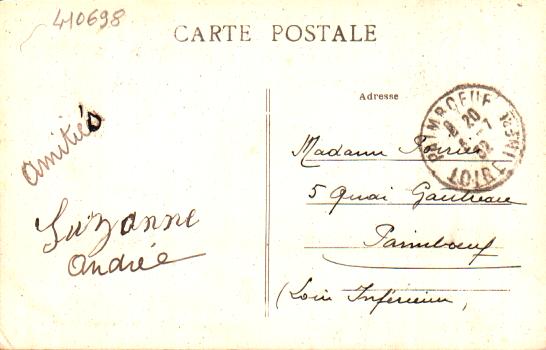 410698
CARTE POSTALE
Adresse
PAIMBOEUF
LOIRE INFRE
20
7
32
Amitiés
Suzanne
Andrée
Madame
5 Quai Gautreau
Paimbœuf
(Loire Inférieure,